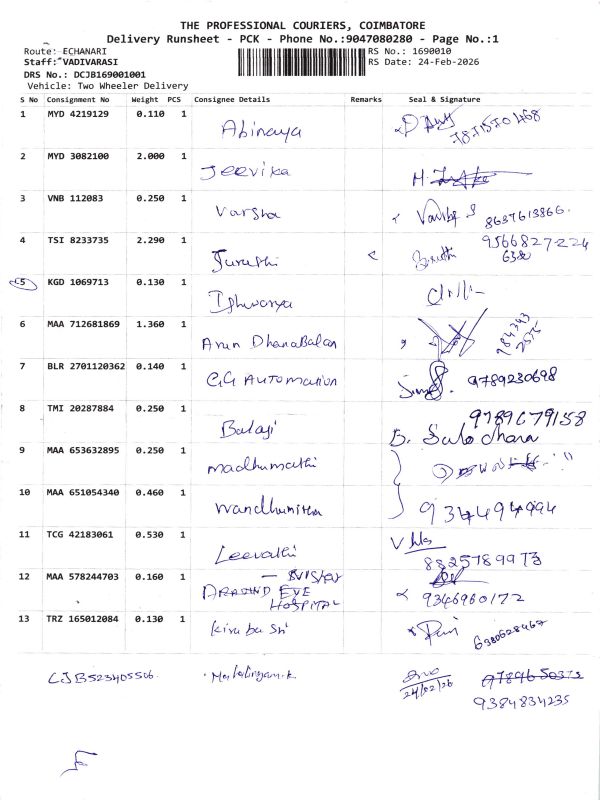 THE PROFESSIONAL COURIERS, COIMBATORE
Delivery Runsheet - PCK - Phone No.:9047080280 - Page No.:1
Route: ECHANARI RS No.: 1690010
Staff: VADIVARASI RS Date: 24-Feb-2026
DRS No.: DCJB169001001
Vehicle: Two Wheeler Delivery
S No Consignment No Weight PCS Consignee Details Remarks Seal & Signature
1 MYD 4219129 0.110 1 Abinaya
2 MYD 3082100 2.000 1 Jeevika
3 VNB 112083 0.250 1 Varsha 8637613866.
4 TSI 8233735 2.290 1 9566827224
5 KGD 1069713 0.130 1 Ishwarya
6 MAA 712681869 1.360 1 Arun Dhanabalan
7 BLR 2701120362 0.140 1 GG Automation 9789230698
8 TMI 20287884 0.250 1 Balaji 9789679158
B. Sulochana
9 MAA 653632895 0.250 1 madhumathi
10 MAA 651054340 0.460 1
11 TCG 42183061 0.530 1 Leevathi
8825789973
12 MAA 578244703 0.160 1 ARAVIND EYE HOSPITAL 9346960172
13 TRZ 165012084 0.130 1 Kirubasri 6380628467
CJB523405506 Mahalingam.k 24/02/26 9384834235